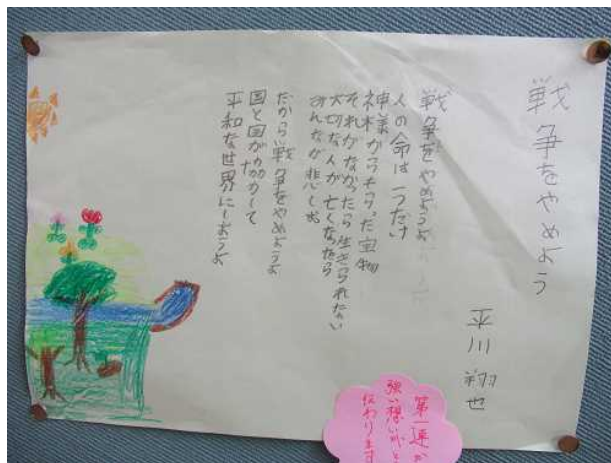 戦争をやめよう
平川 翔也
戦争をやめようよ
人の命は一つだけ
神様からもらった宝物
それがなかったら生きられない
大切な人が亡くなったら
みんなが悲しむ
だから戦争をやめようよ
国と国が協力して
平和な世界にしようよ
第一連が
強い想いがと
伝わります